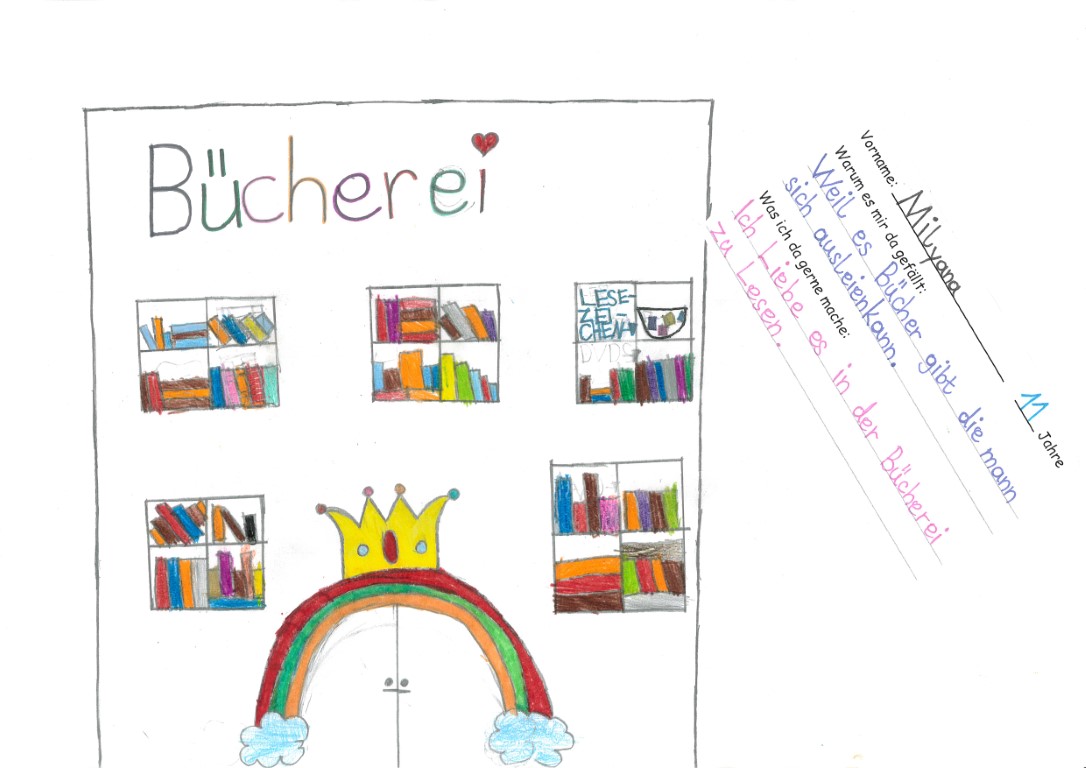 Bücherei
LESE-
ZEI-
CHEN
DVDS
Vorname: Milyana 11 Jahre
Warum es mir da gefällt:
Weil es Bücher gibt die mann
sich ausleienkann.
Was ich da gerne mache:
Ich Liebe es in der Bücherei
zu Lesen.